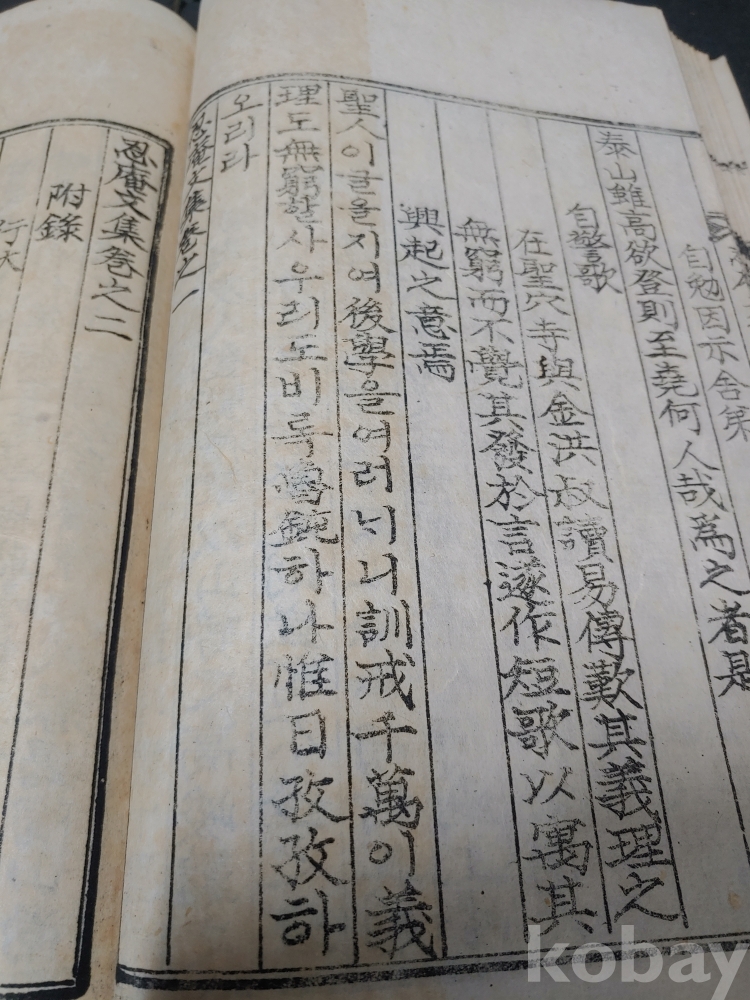 自勉因示舍弟
泰山雖高欲登則至堯何人哉爲之者是
自警歌
在聖穴寺與金洪叔讀易傳歎其義理之
無窮而不覺其發於言遂作短歌以寓其
興起之意焉
聖人이글을지여後學을여러니니訓戒千萬이義
理도無窮할사우리도비록魯鈍하나惟日孜孜하
오리라
忍庵文集卷之一
忍庵文集卷之二
附錄
行狀
kobay